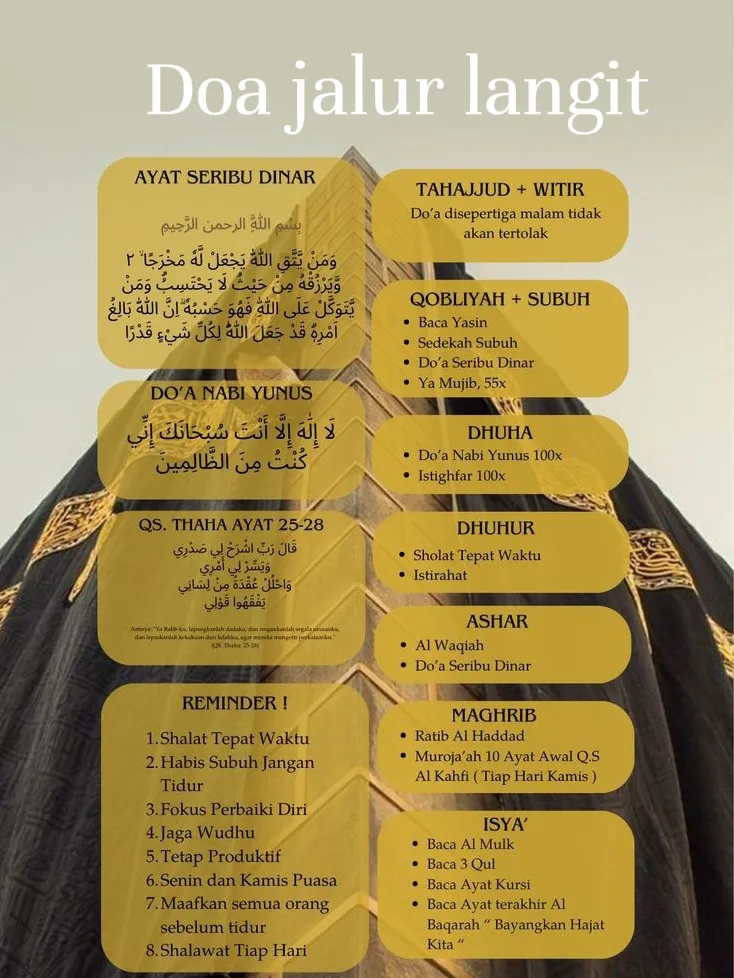 Doa jalur langit
AYAT SERIBU DINAR
بِسْمِ اللَّهِ الرحمن الرَّحِيمِ
وَمَنْ يَّتَّقِ اللّٰهَ يَجْعَلْ لَّهٗ مَخْرَجًاۙ ٢
وَّيَرْزُقْهُ مِنْ حَيْثُ لَا يَحْتَسِبُۗ وَمَنْ
يَّتَوَكَّلْ عَلَى اللّٰهِ فَهُوَ حَسْبُهٗۗ اِنَّ اللّٰهَ بَالِغُ
اَمْرِهٖۗ قَدْ جَعَلَ اللّٰهُ لِكُلِّ شَيْءٍ قَدْرًا
DO’A NABI YUNUS
لَا إِلَٰهَ إِلَّا أَنْتَ سُبْحَانَكَ إِنِّي
كُنْتُ مِنَ الظَّالِمِينَ
QS. THAHA AYAT 25-28
قَالَ رَبِّ اشْرَحْ لِي صَدْرِي
وَيَسِّرْ لِي أَمْرِي
وَاحْلُلْ عُقْدَةً مِنْ لِسَانِي
يَفْقَهُوا قَوْلِي
Artinya: "Ya Rabb-ku, lapangkanlah dadaku, dan mudahkanlah segala urusanku,
dan lepaskanlah kekakuan dari lidahku, agar mereka mengerti perkataanku."
(QS. Thaha: 25-28)
REMINDER !
1. Shalat Tepat Waktu
2. Habis Subuh Jangan
Tidur
3. Fokus Perbaiki Diri
4. Jaga Wudhu
5. Tetap Produktif
6. Senin dan Kamis Puasa
7. Maafkan semua orang
sebelum tidur
8. Shalawat Tiap Hari
TAHAJJUD + WITIR
Do’a disepertiga malam tidak
akan tertolak
QOBLIYAH + SUBUH
• Baca Yasin
• Sedekah Subuh
• Do’a Seribu Dinar
• Ya Mujib, 55x
DHUHA
• Do’a Nabi Yunus 100x
• Istighfar 100x
DHUHUR
• Sholat Tepat Waktu
• Istirahat
ASHAR
• Al Waqiah
• Do’a Seribu Dinar
MAGHRIB
• Ratib Al Haddad
• Muroja’ah 10 Ayat Awal Q.S
Al Kahfi ( Tiap Hari Kamis )
ISYA’
• Baca Al Mulk
• Baca 3 Qul
• Baca Ayat Kursi
• Baca Ayat terakhir Al
Baqarah “ Bayangkan Hajat
Kita “